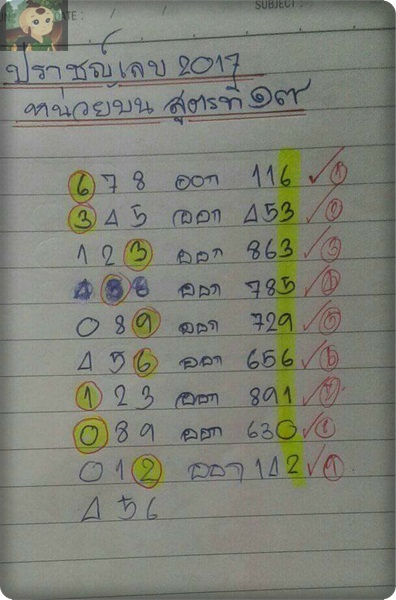 DATE: / / SUBJECT:
ปราชญ์เลข 2017
หน่วยบน สูตรที่ ๑๙
6 7 8 ออก 116 ✓ 1
3 4 5 ออก 453 ✓ 2
1 2 3 ออก 863 ✓ 3
4 5 6 ออก 785 ✓ 4
0 8 9 ออก 729 ✓ 5
4 5 6 ออก 656 ✓ 6
1 2 3 ออก 891 ✓ 7
0 8 9 ออก 630 ✓ 8
0 1 2 ออก 142 ✓ 9
4 5 6